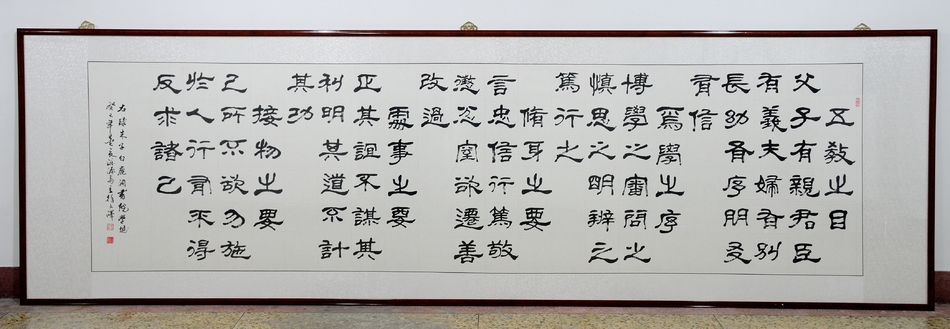 五教之目
父子有親君臣
有義夫婦有別
長幼有序朋友
有信
爲學之序
博學之審問之
慎思之明辨之
篤行之
脩身之要
言忠信行篤敬
懲忿窒欲遷善
改過
處事之要
正其誼不謀其
利明其道不計
其功
接物之要
己所不欲勿施
於人行有不得
反求諸己
右録朱子白鹿洞書院學規